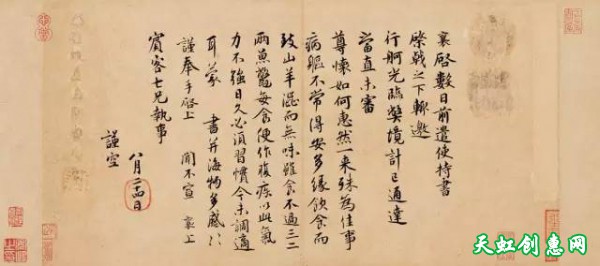 襄啓數日前遣使持書
棨戟之下輒邀
行舸光臨弊境計已通達
當直未審
尊懷如何惠然一來殊為佳事
病軀不常得安多緣飲食而
致山羊澀而無味雖食不過三二
兩魚鱉每食便作腹疾以此氣
力不強日久必須習慣今未調適
耳蒙 書并海物多感〻
謹奉手啓上 聞不宣 襄上
賓客七兄執事
八月廿四日
謹空
天虹创惠网